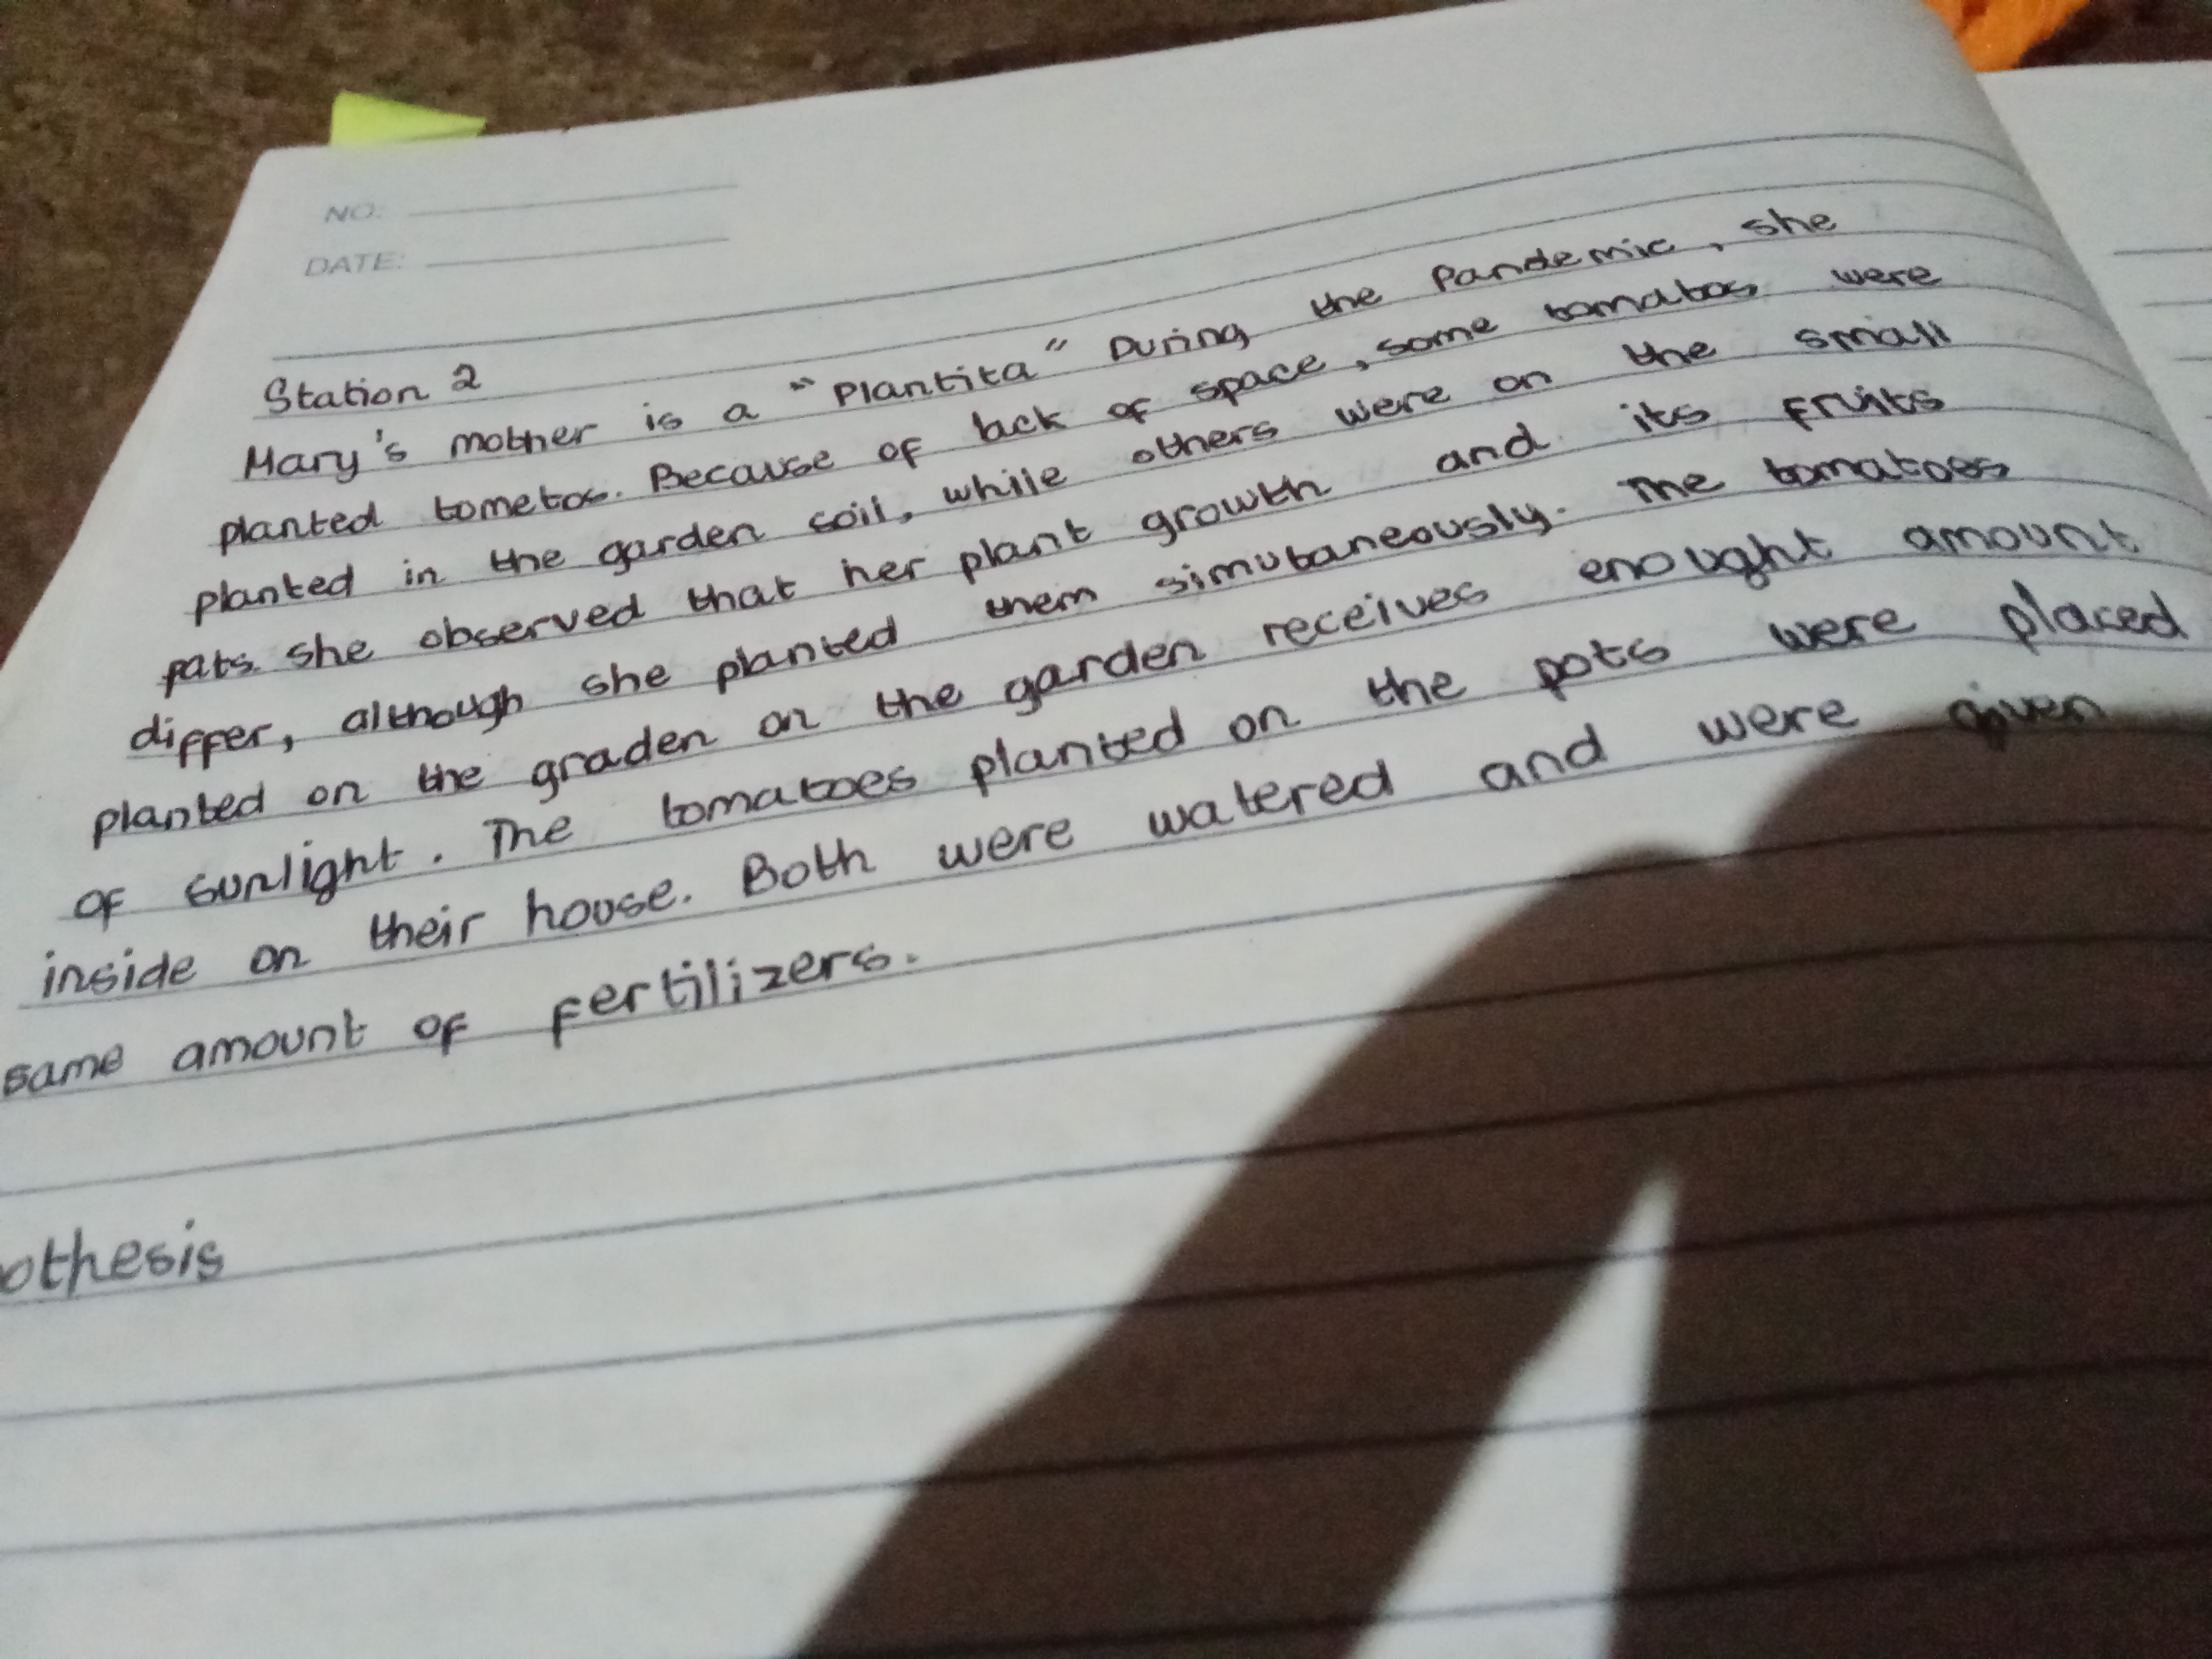 NO:
DATE:
Station 2
Mary's mother is a "Plantita" During the Pandemic, she
planted tometos. Because of lack of space, some tomatos were
planted in the garden soil, while others were on the small
pats. she observed that her plant growth and its fruits
differ, although she planted them simutaneously. The tomatoes
planted on the graden on the garden receives enought amount
of sunlight. The tomatoes planted on the pots were placed
inside on their house. Both were watered and were given
same amount of fertilizers.
othesis